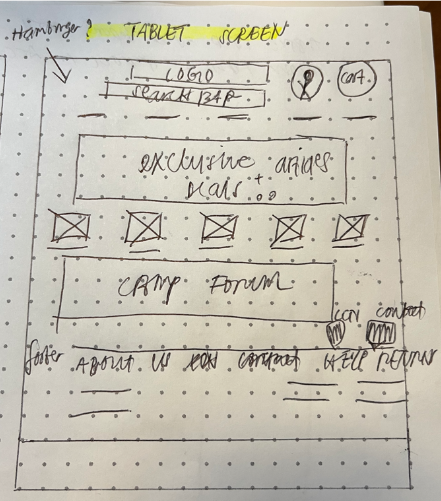 Hamburger? TABLET SCREEN
LOGO
Search BAR
cart
exclusive
deals
CAMP Forum
contact
footer ABOUT US contact HELP RETURN